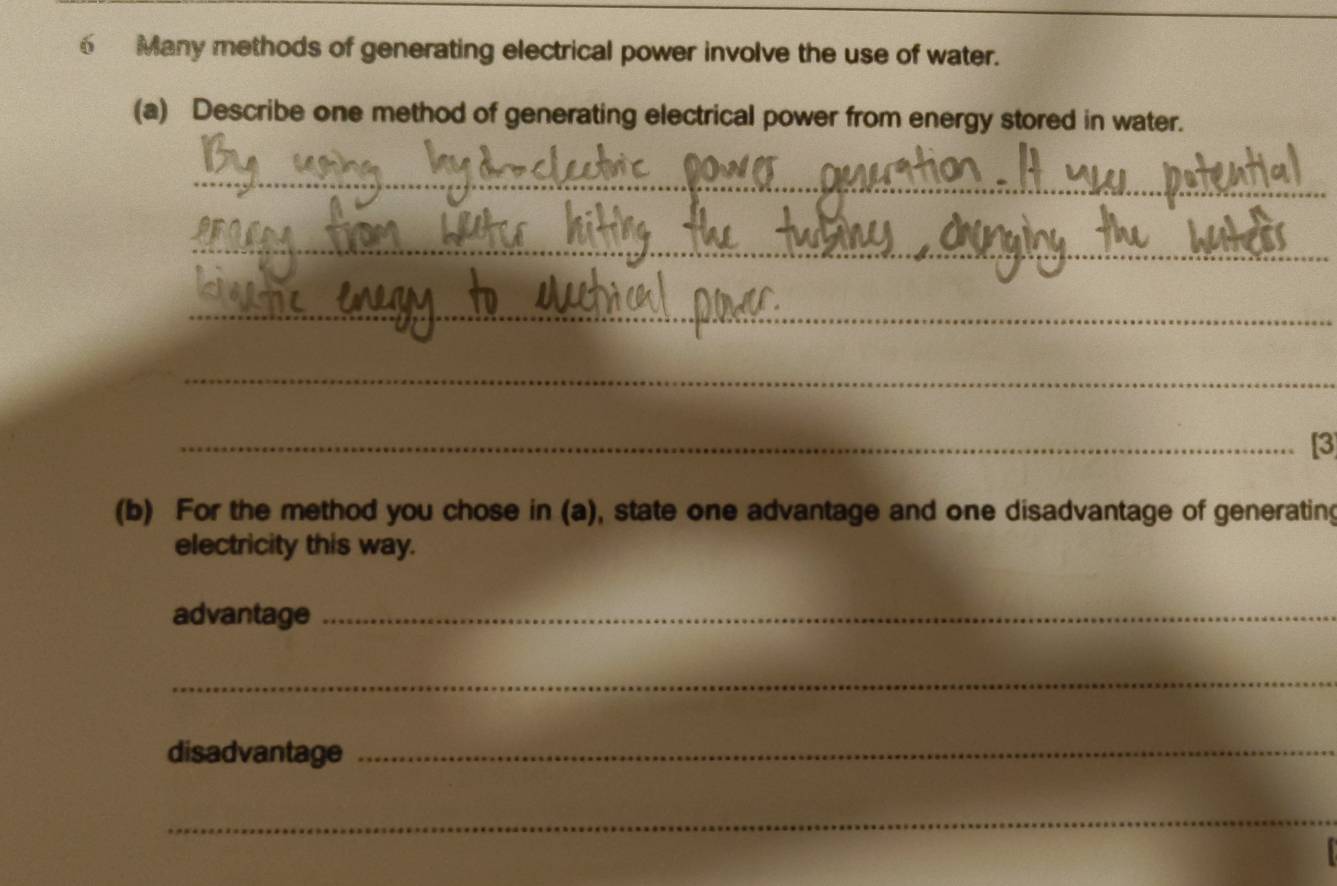 6 Many methods of generating electrical power involve the use of water.
(a) Describe one method of generating electrical power from energy stored in water.
By using hydroelectric power generation. It uses potential
energy from water hiting the turbines, changing the waters
kinetic energy to electrical power.
[3]
(b) For the method you chose in (a), state one advantage and one disadvantage of generating
electricity this way.
advantage
disadvantage